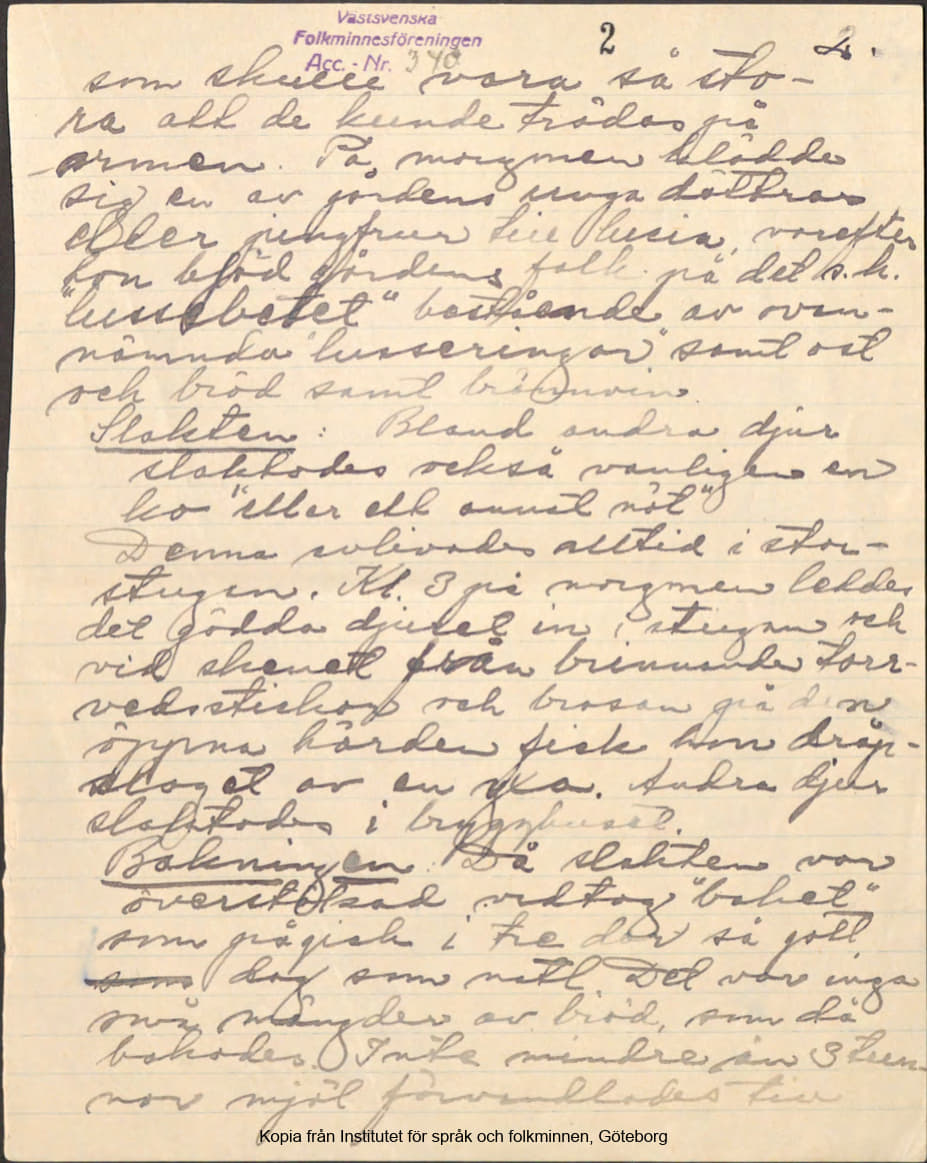 Västsvenska
Folkminnesföreningen
Acc. - Nr. 340
2
2.
som skulle vara så sto-
ra att de kunde trädas på
armen. På morgonen klädde
sig en av gårdens unga döttrar
eller jungfrur till lusia, varefter
hon bjöd gårdens folk på det s.k.
"lussebetet" bestående av ovan-
nämnda "lusseringar" samt ost
och bröd samt brännvin.
Slakten: Bland andra djur
slaktades också vanligen en
ko "eller ett annat nöt"
Denna avlivades alltid i stor-
stugan. Kl. 3 på morgonen leddes
det gödda djuret in i stugan och
vid skenet från brinnande torr-
vedsstickor och brasan på den
öppna härden fick hon dråp-
slaget av en yxa. Andra djur
slaktades i brygghuset.
Bakningen. Då slakten var
överstökad vidtog "baket"
som pågick i tre dar så gott
som dag som natt. Det var inga
små mängder av bröd, som då
bakades. Inte mindre än 3 tun-
nor mjöl förvandlades till
Kopia från Institutet för språk och folkminnen, Göteborg